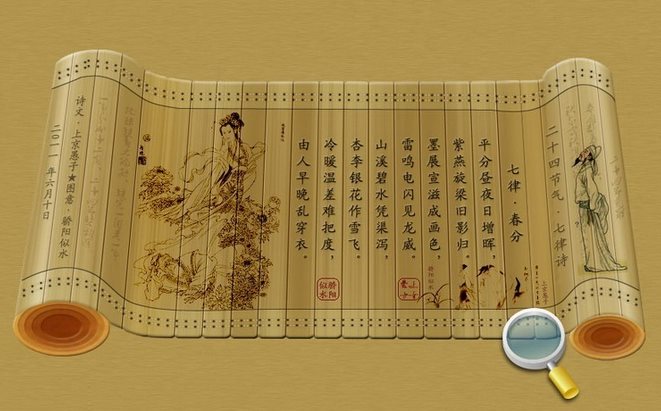 二十四节气·七律诗
上京愚子
七律·春分
平分昼夜日增晖，
紫燕旋梁旧影归。
墨展宣滋成画色，
骄阳似水
雷鸣电闪见龙威。
山溪碧水凭渠泻，
杏李银花作雪飞。
冷暖温差难把度，
骄阳似水
由人早晚乱穿衣。
诗文·上京愚子★图意·骄阳似水
二〇一一年六月十日